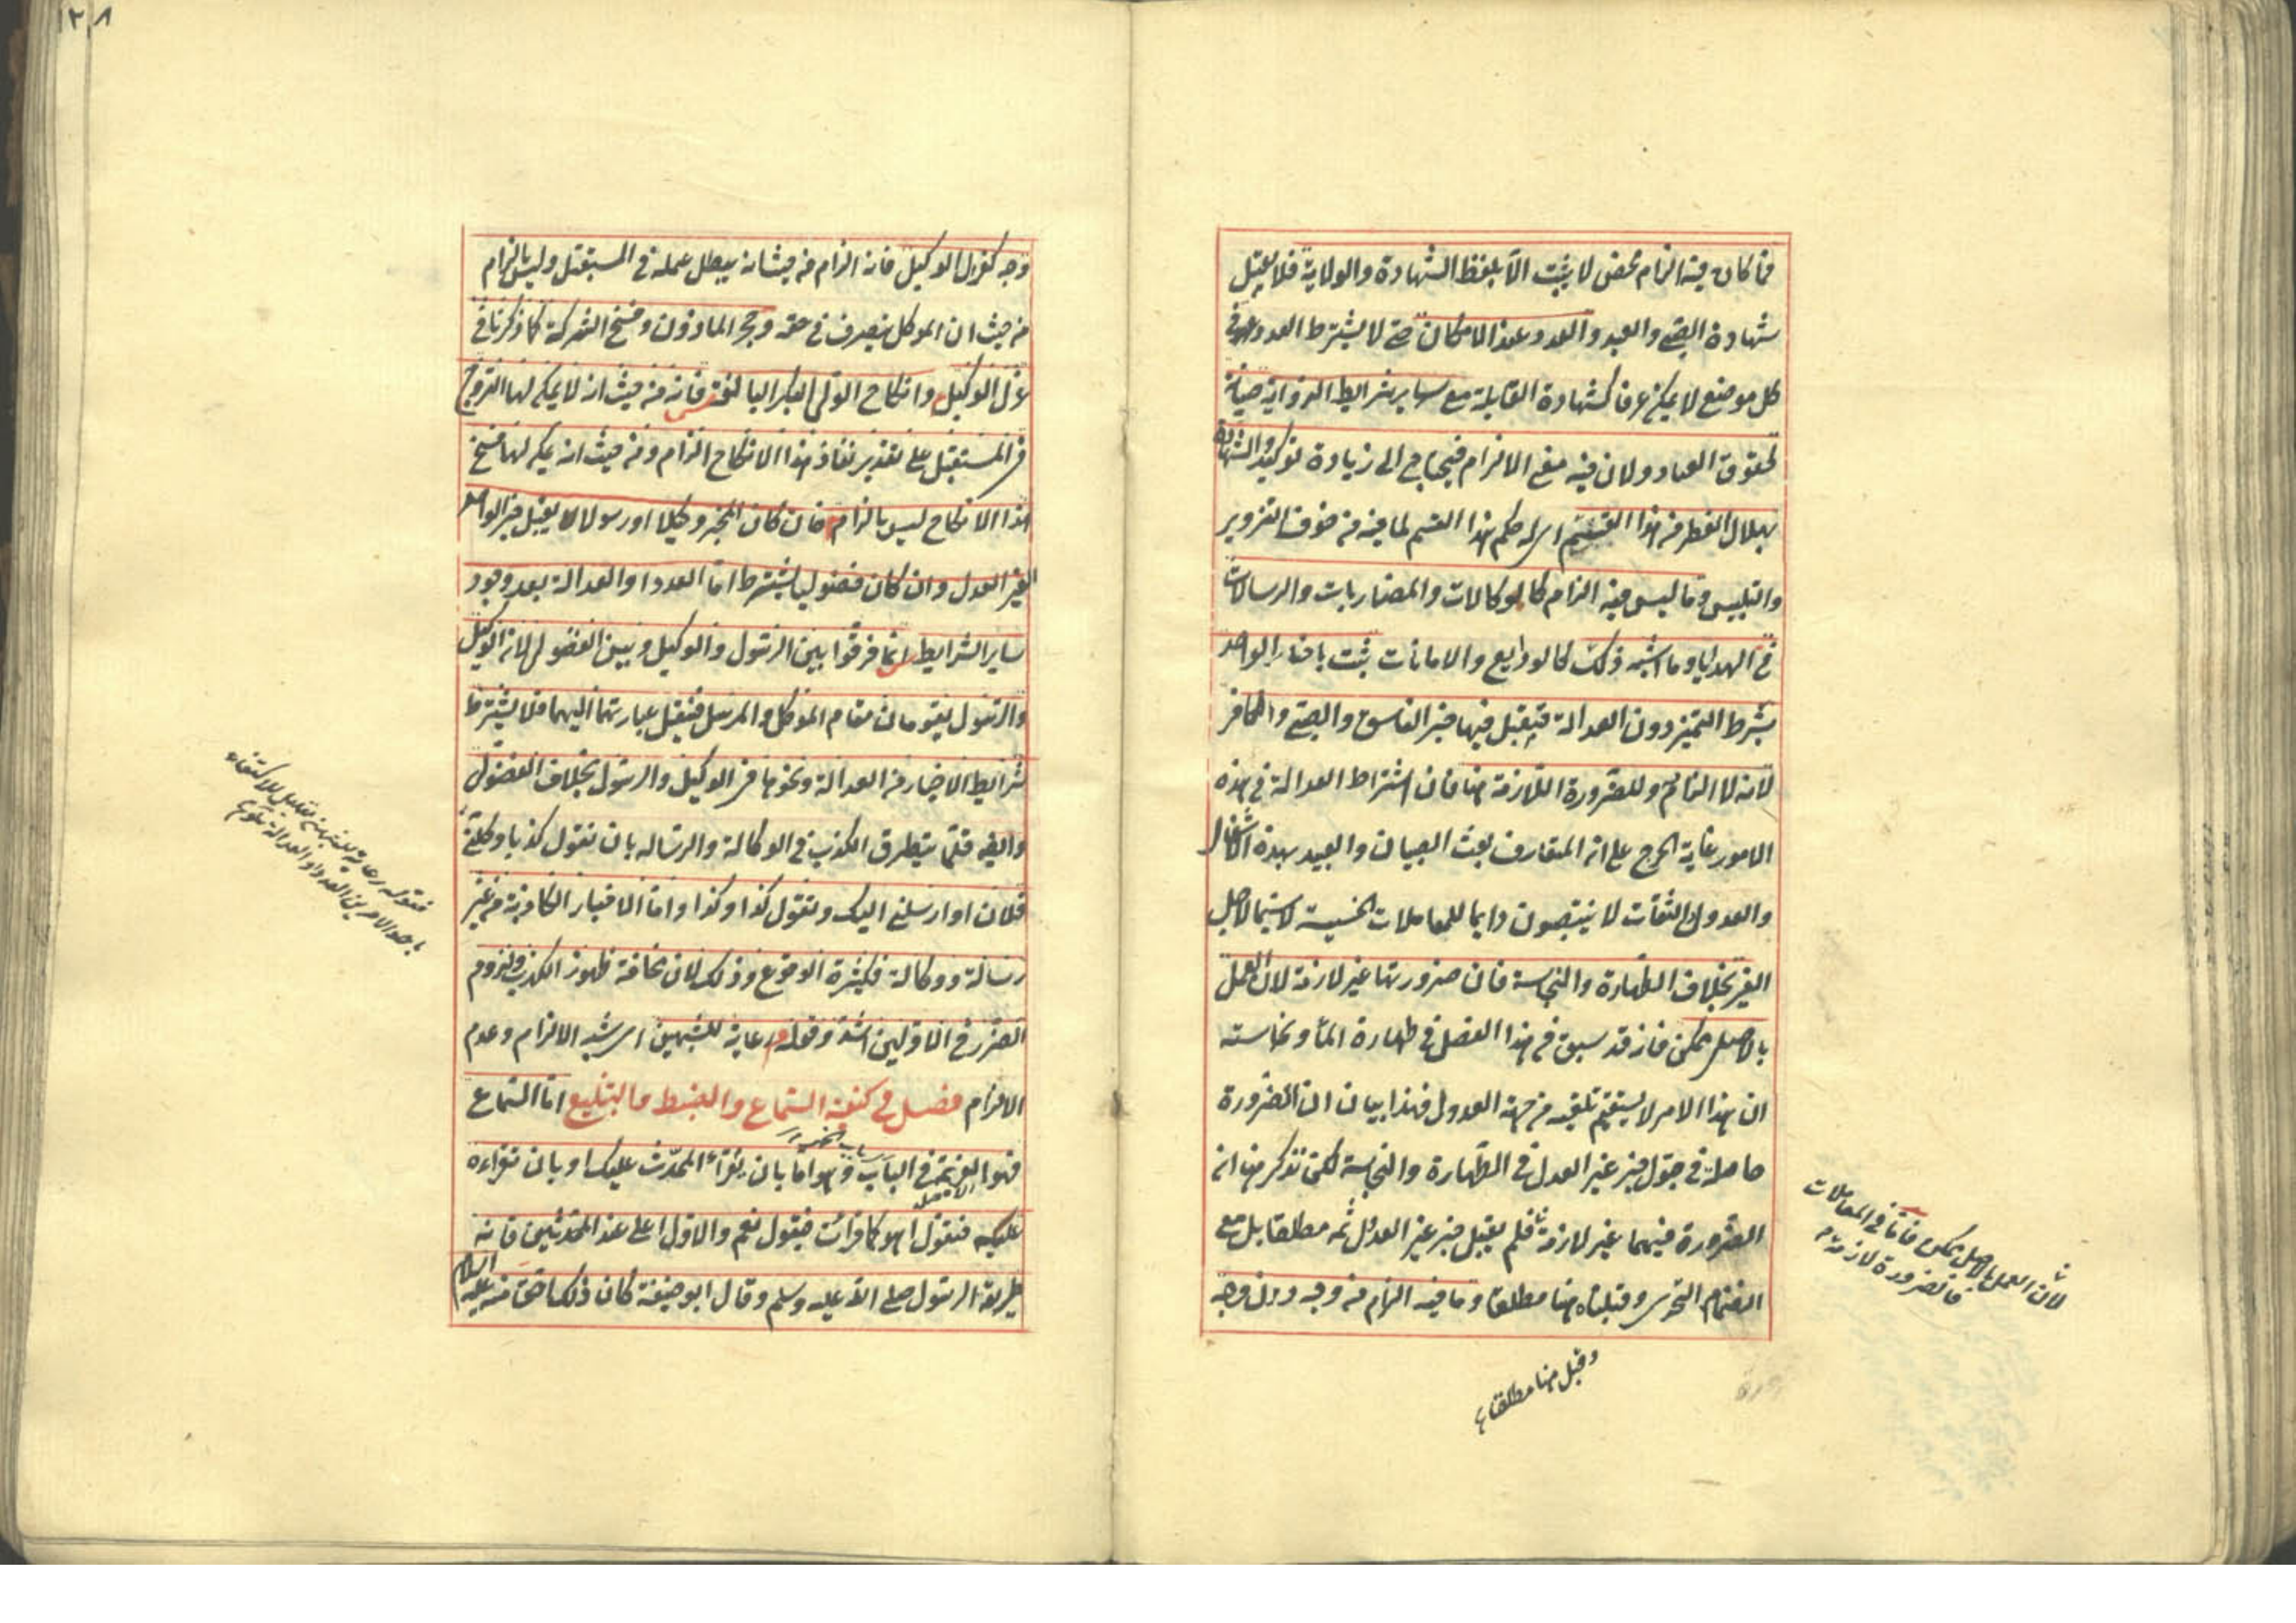 فما كان فيه الزام محض لا يثبت الا بلفظ الشهادة والولاية فلا يقبل
شهادة الصبي والعبد والعدد عند الامكان حتى لا يشترط العدد في
كل موضع لا يمكن عرفا كشهادة القابلة مع ساير شرايط الرواية صيانة
لحقوق العباد ولان فيه معنى الالزام فيحتاج الى زيادة توكيد والشهادة
بهلال الفطر من هذا القسم اى حكم هذا القسم لما فيه من خوف التزوير
والتلبيس وما ليس فيه الزام كالوكالات والمضاربات والرسالات
في الهدايا وما اشبه ذلك كالودايع والامانات يثبت باخبار الواحد
بشرط التميز دون العدالة فيقبل فيها خبر الفاسق والصبي والكافر
لانه لا الزام وللضرورة اللازمة هنا فان اشتراط العدالة في هذه
الامور غاية الحرج على ان المتعارف بعث الصبيان والعبيد بهذه الاشغال
والعدول الثقات لا ينتصبون دايما للمعاملات الخسيسة لا سيما لاجل
الغير بخلاف الطهارة والنجاسة فان ضرورتها غير لازمة لان العمل
بالاصل ممكن فانه قد سبق في هذا الفصل في طهارة الماء ونجاسته
ان هذا الامر لا يستقيم تلقيه من جهة العدول فهذا بيان ان الضرورة
حاصلة في قبول خبر غير العدل في الطهارة والنجاسة لكن نذكر هنا ان
الضرورة فيهما غير لازمة فلم يقبل خبر غير العدل ثمه مطلقا بل مع
انضمام التحرى وقبلناه هنا مطلقا وما فيه الزام من وجه دون وجه
لان العمل بالاصل ممكن فاما في المعاملات
فالضرورة لازمة
وقبل هنا مطلقا
١٢٨
وجه كعزل الوكيل فانه الزام من حيث انه يبطل عمله في المستقبل وليس بالزام
من حيث ان الموكل يتصرف في حقه وحجر الماذون وفسخ الشركة كما ذكرنا في
عزل الوكيل وانكاح الولي البكر البالغة فانه من حيث انه لا يمكن لها التزوج
في المستقبل على تقدير نفاذ هذا الانكاح الزام ومن حيث انه يمكن لها فسخ
هذا الانكاح ليس بالزام فان كان المخبر وكيلا او رسولا يقبل خبر الواحد
الغير العدل وان كان فضوليا يشترط اما العدد او العدالة بعد وجود
ساير الشرايط انما فرقوا بين الرسول والوكيل وبين الفضولي لان الوكيل
والرسول يقومان مقام الموكل والمرسل فينتقل عبارتهما اليهما فلا يشترط
شرايط الاخبار من العدالة ونحوها في الوكيل والرسول بخلاف الفضولي
وايضا قلما يتطرق الكذب في الوكالة والرساله بان يقول كذبا وكلني
فلان او ارسلني اليك ويقول كذا وكذا واما الاخبار الكاذبة من غير
رسالة ووكالة فكثيرة الوقوع وذلك لان مخافة ظهور الكذب ولزوم
الضرر في الاولين اشد وقوله رعاية للشبهين اى شبه الالزام وعدم
الالزام فصل في كيفية السماع والضبط والتبليغ اما السماع
فهو العزيمة في الباب وهو اما بان يقراء المحدث عليك او بان تقراءه
عليه فتقول اهو كما قرات فيقول نعم والاول اعلى عند المحدثين فانه
طريقة الرسول صلى الله عليه وسلم وقال ابو حنيفة كان ذلك احق منه عليه السلام
فقوله رعاية للشبهين تعليل للاكتفاء
باحد الامرين العدد او العدالة تلويح